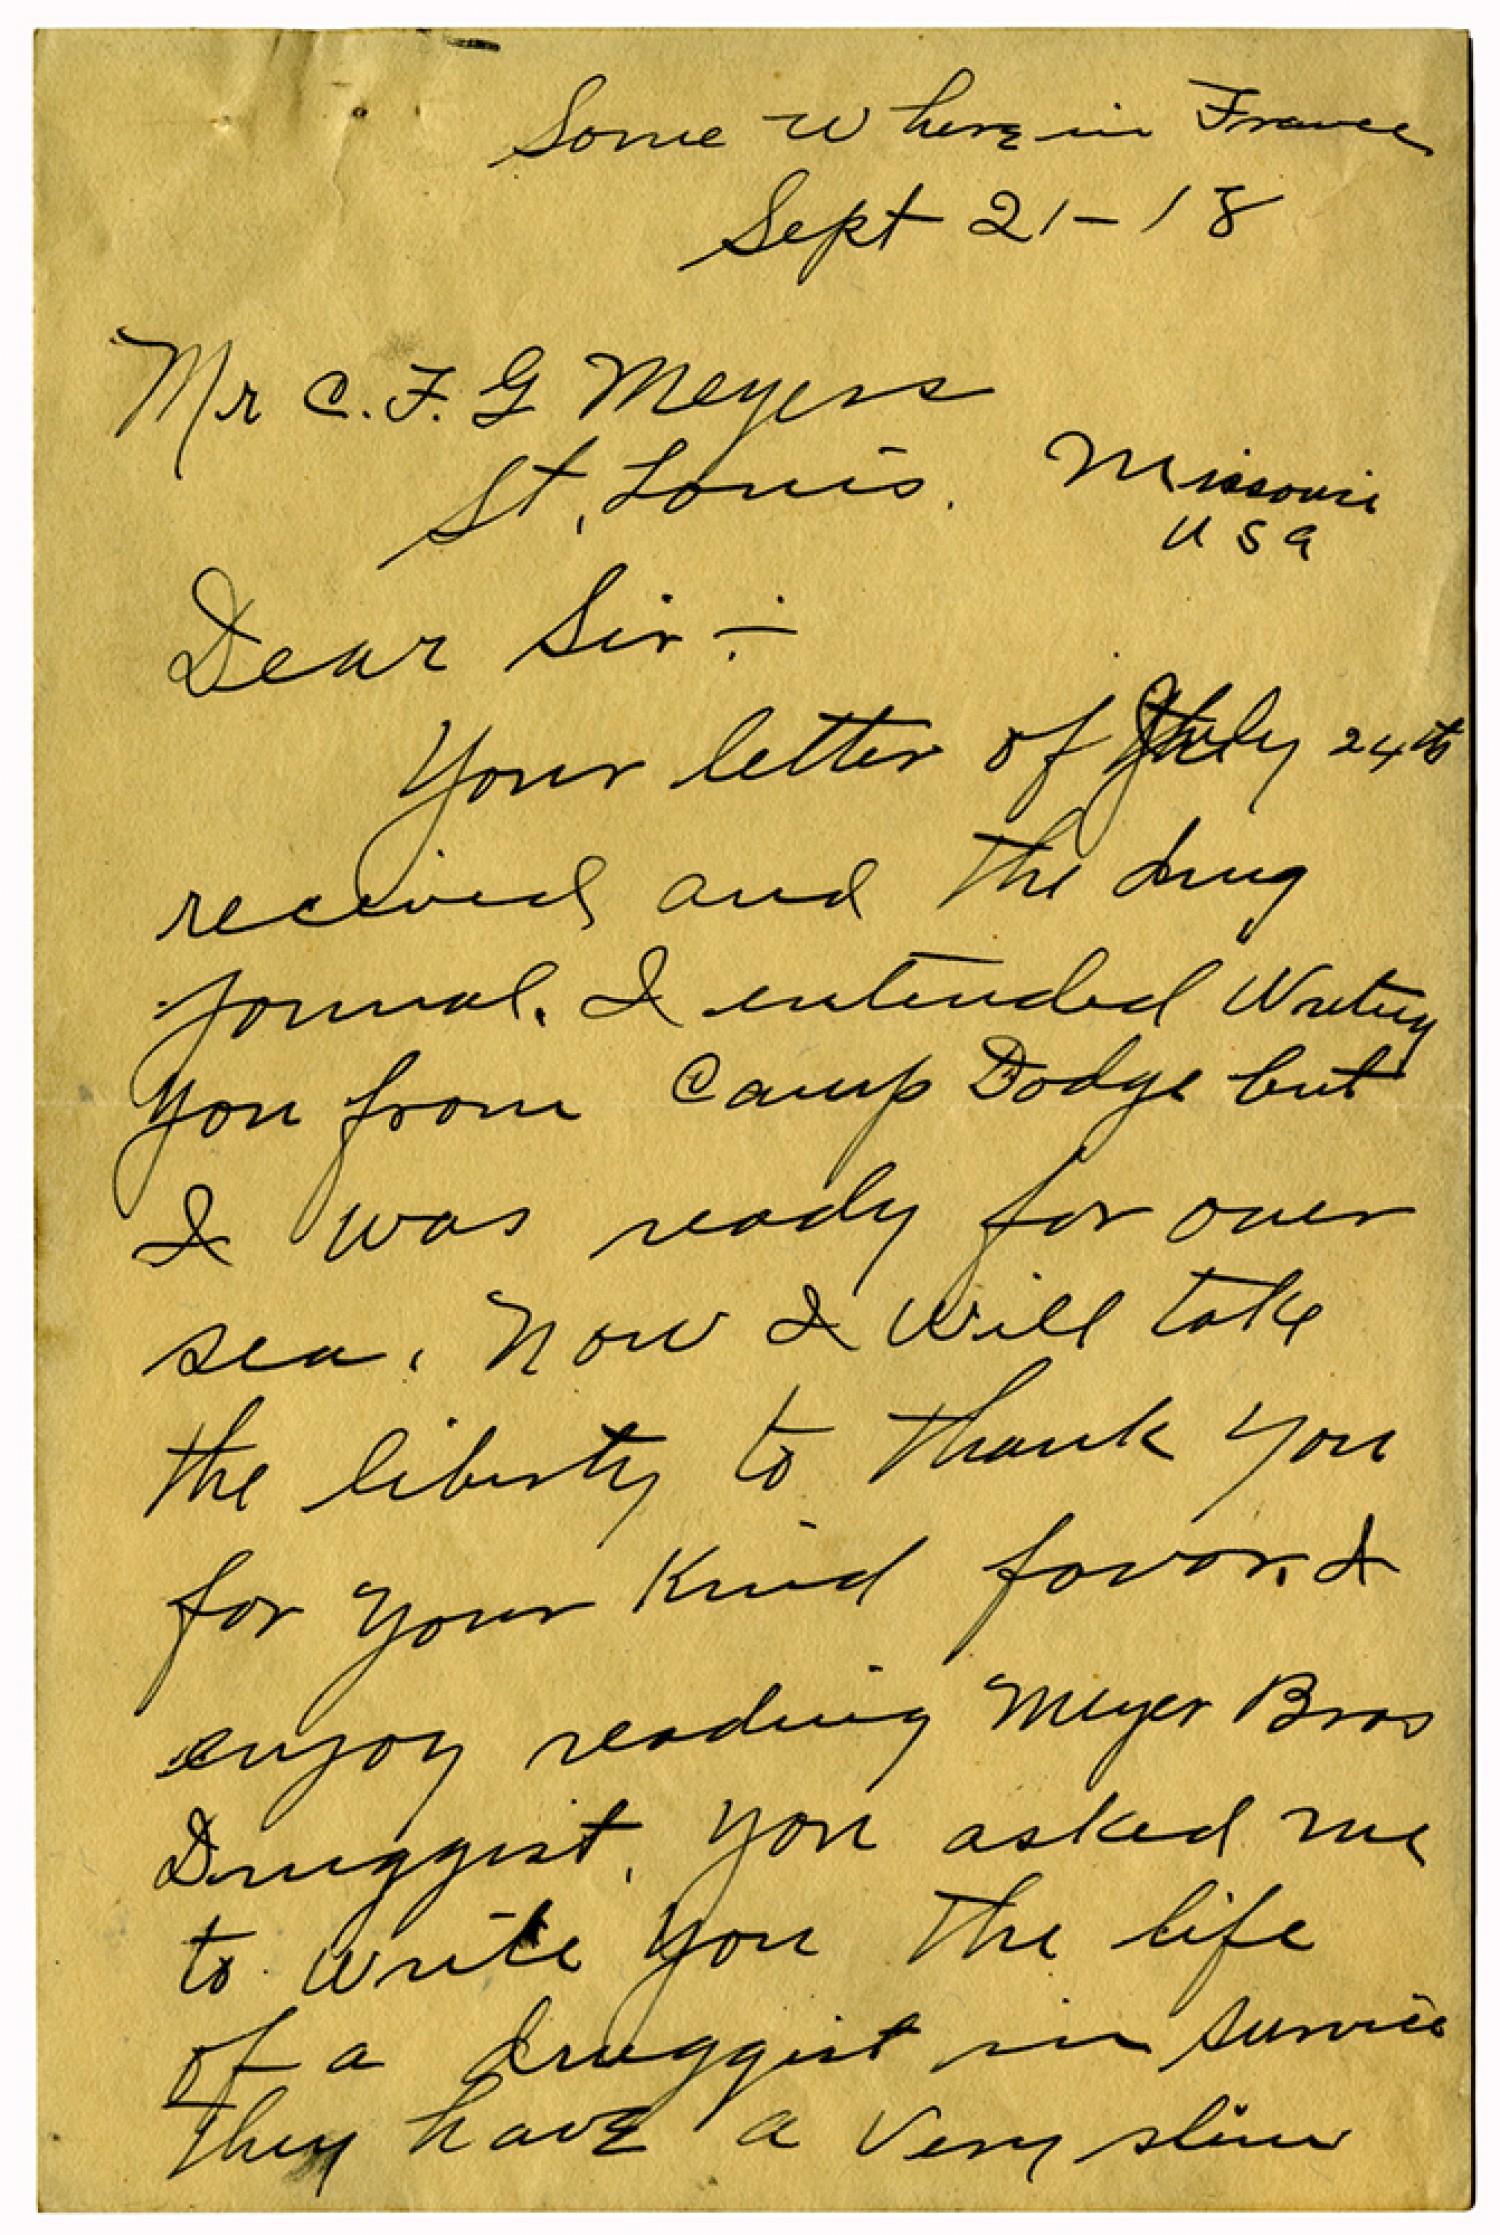 Some Where in France
Sept 21-18
Mr C. F. G Meyers
St, Louis. Missouri
USA
Dear Sir:-
Your letter of July 24th
received and the drug
jornal. I intended Writing
you from Camp Dodge but
I was ready for over
sea. Now I will take
the liberty to thank you
for your kind favor. I
enjoy reading Meyer Bros
Druggist, you asked me
to write you the life
of a druggist in service
they have a very slim